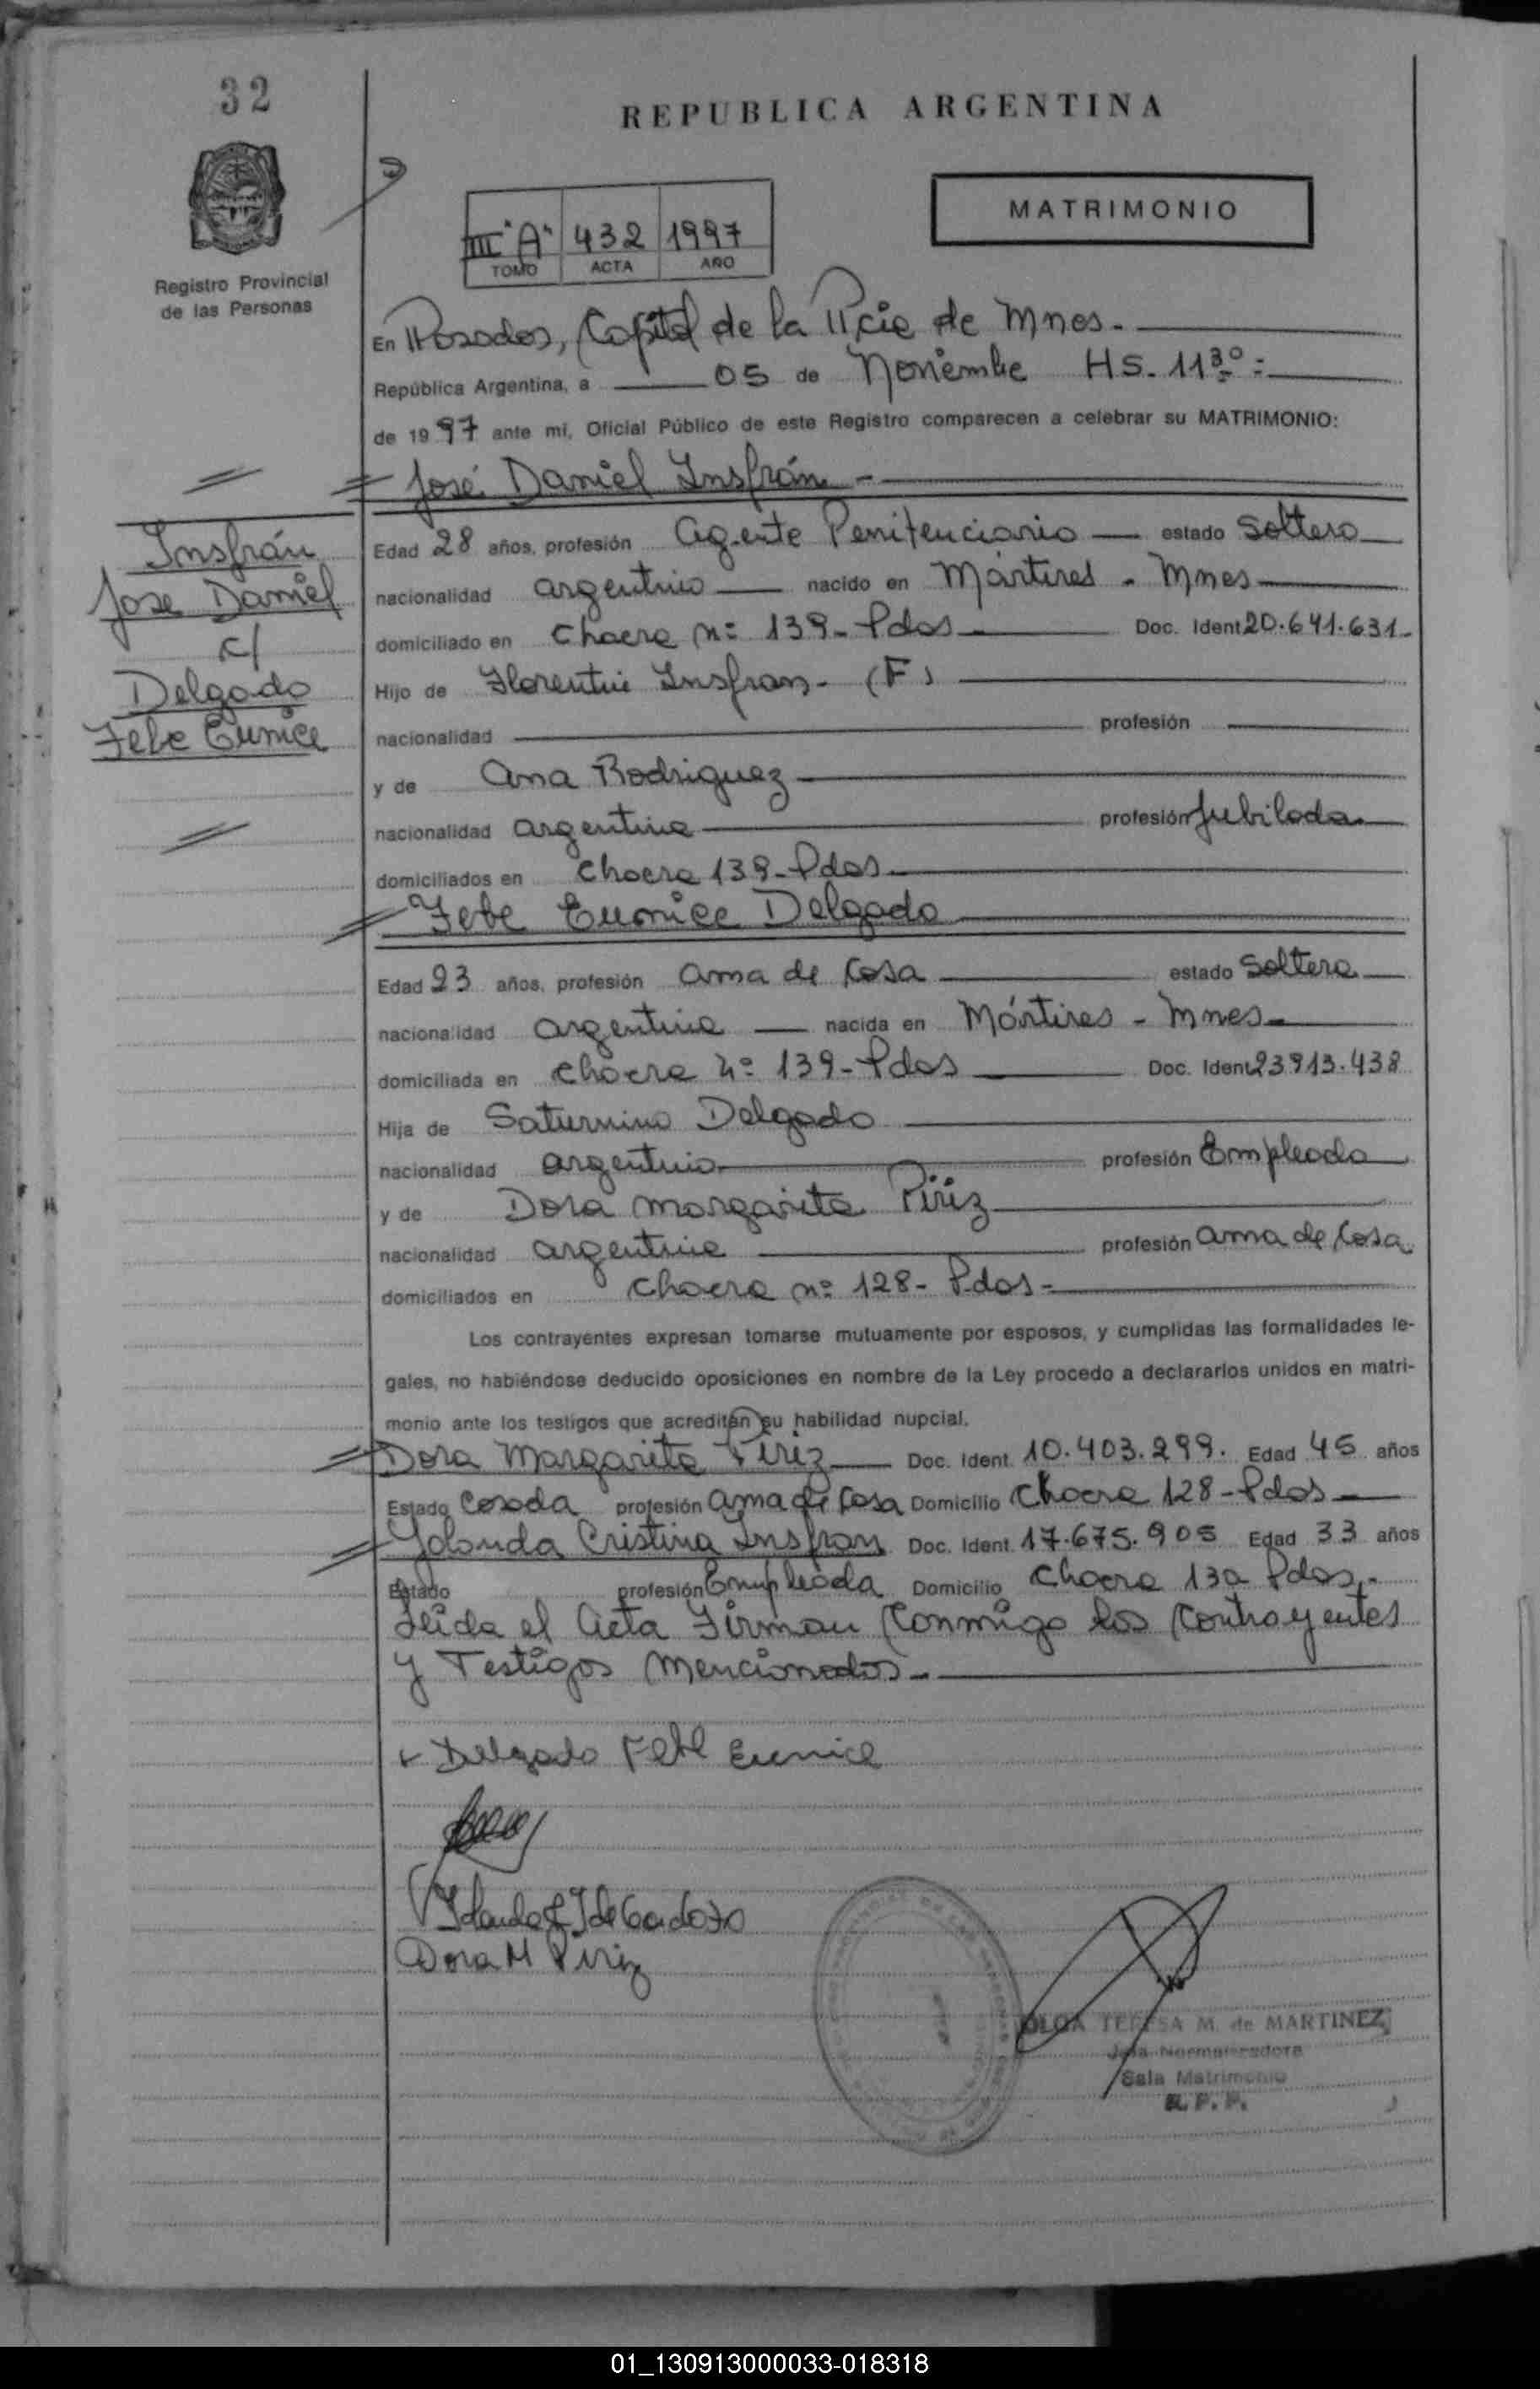 32
REPUBLICA ARGENTINA
MATRIMONIO
III "A" 432 1997
TOMO ACTA AÑO
Registro Provincial
de las Personas
En Posadas, Capital de la Pcia de Mnes.
República Argentina, a 05 de Noviembre HS. 11 30
de 1997 ante mi, Oficial Público de este Registro comparecen a celebrar su MATRIMONIO:
José Daniel Insfrán
Insfrán
Jose Daniel
c/
Delgado
Febe Eunice
Edad 28 años, profesión Agente Penitenciario estado Soltero
nacionalidad argentino nacido en Mártires - Mnes
domiciliado en Chacra nº 139 - Pdas Doc. Ident 20.641.631
Hijo de Florentin Insfran - (F)
nacionalidad profesión
y de Ana Rodriguez
nacionalidad argentina profesión Jubilada
domiciliados en Chacra 139 - Pdas.
Febe Eunice Delgado
Edad 23 años, profesión Ama de Casa estado Soltera
nacionalidad argentina nacida en Mártires - Mnes
domiciliada en Chacra nº 139 - Pdas Doc. Ident 23.913.438
Hija de Saturnino Delgado
nacionalidad argentino profesión Empleado
y de Dora Margarita Piriz
nacionalidad argentina profesión ama de Casa.
domiciliados en Chacra nº 128 - Pdas -
Los contrayentes expresan tomarse mutuamente por esposos, y cumplidas las formalidades le-
gales, no habiéndose deducido oposiciones en nombre de la Ley procedo a declararlos unidos en matri-
monio ante los testigos que acreditan su habilidad nupcial.
Dora Margarita Piriz Doc. Ident. 10.403.299. Edad 45 años
Estado Casada profesión ama de Casa Domicilio Chacra 128 - Pdas
Yolanda Cristina Insfran Doc. Ident. 17.675.905 Edad 33 años
Estado profesión Empleada Domicilio Chacra 130 Pdas.
Leida el Acta Firman Conmigo los Contrayentes
y Testigos Mencionados.
Delgado Febe Eunice
Dora M Piriz
OLGA TERESA M. de MARTINEZ
Sala Matrimonio
R. P. P.
01_130913000033-018318